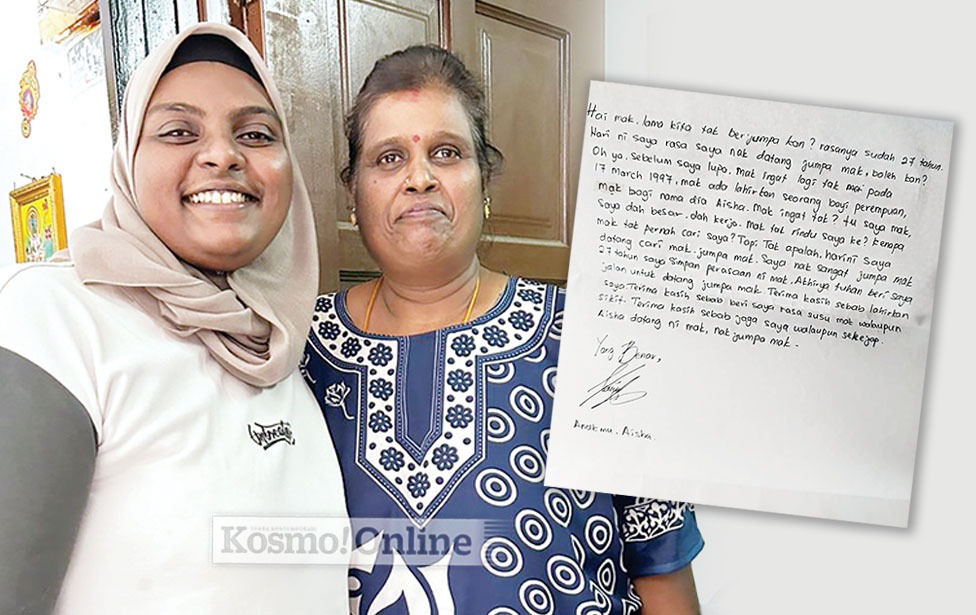 Hai mak. lama kita tak berjumpa kan? rasanya sudah 27 tahun.
Hari ni saya rasa saya nak datang jumpa mak, boleh kan?
Oh ya. Sebelum saya lupa. Mak ingat lagi tak mai pada
17 march 1997, mak ada lahirkan seorang bayi perempuan,
mak bagi nama dia Aisha. Mak ingat tak? tu saya mak,
saya dah besar. dah kerja. Mak tak rindu saya ke? kenapa
mak tak pernah cari saya? Tapi Tak apalah. harini saya
datang cari mak. jumpa mak. Saya nak sangat jumpa mak
27 tahun saya simpan perasaan ni mak. Akhirya tuhan beri saya
jalan untuk datang jumpa mak Terima kasih sebab lahirkan
saya. Terima kasih sebab beri saya rasa susu mak walaupun
sikit. Terima kasih sebab jaga saya walaupun sekejap.
Aisha datang ni mak, nak jumpa mak.
Yang Benar,
Anakmu. Aisha
Kosmo! Online